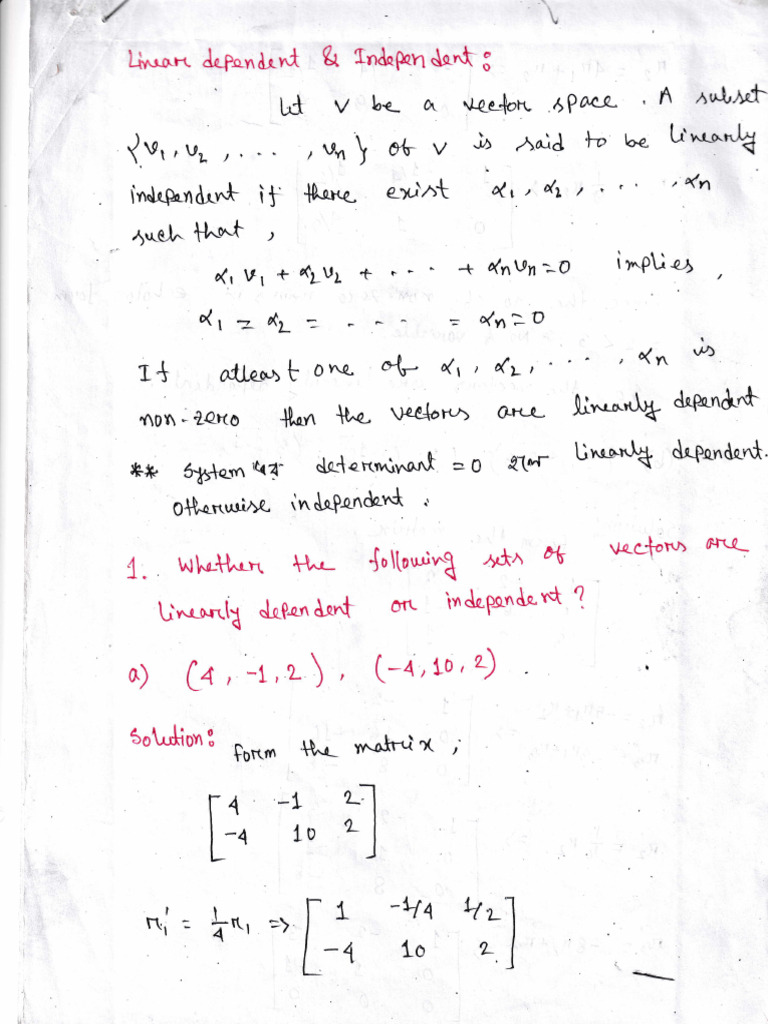 Linear dependent & Independent:
Let V be a vector space. A subset
{v₁, v₂, ...., vₙ} of V is said to be linearly
independent if there exist α₁, α₂, ....., αₙ
such that,
α₁v₁ + α₂v₂ + .... + αₙvₙ = 0 implies,
α₁ = α₂ = - - - - = αₙ = 0
If atleast one of α₁, α₂, ....., αₙ is
non-zero then the vectors are linearly dependent
** System এর determinant = 0 হলে linearly dependent.
otherwise independent.
1. Whether the following sets of vectors are
linearly dependent or independent?
a) (4, -1, 2), (-4, 10, 2).
Solution: Form the matrix;
[4 -1 2
-4 10 2]
r₁' = 1/4 r₁ => [1 -1/4 1/2
-4 10 2]